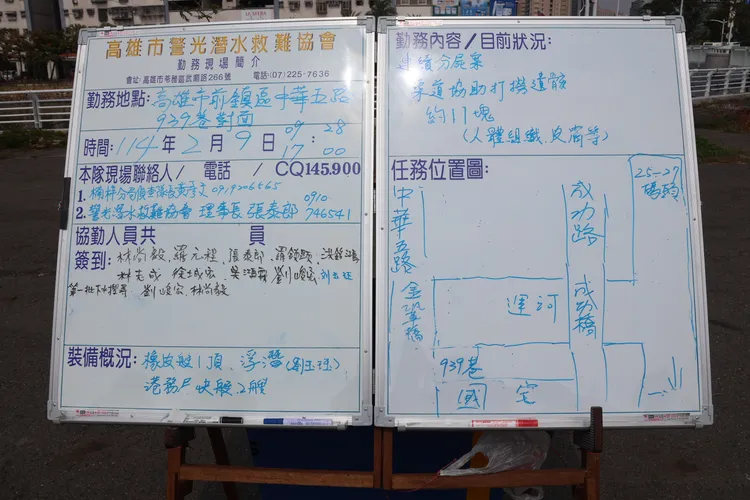 高雄市警光潛水救難協會
勤務現場簡介
會址:高雄市苓雅區武廟路266號 電話:(07)225-7636
勤務地點:高雄市前鎮區中華五路
939巷對面
時間:114年2月9日 09 28
17 00
本隊現場聯絡人/電話/CQ145.900
1.楠梓分局偵查隊長
0910
2.警光潛水救難協會 理事長 張泰郎 746541
協勤人員共 員
簽到:林尚毅 羅元程 張泰郎
劉峻宏
第一批下水搜尋 劉峻宏 林尚毅
裝備概況:橡皮艇1頂,浮潛
港務戶快艇2艘
勤務內容/目前狀況:
連續分屍案
渠道協助打撈遺骸
約11塊
(人體組織、皮膚等)
任務位置圖:
25-27
碼頭
中華五路
成功路
金單橋
運河
成功橋
939巷
國宅